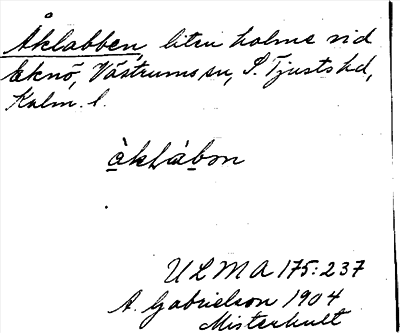 Åklabben, liten holme vid
Eknö, Västrums sn, S. Tjusts hd,
Kalm. l.
àkLábon
ULMA 175:237
A. Gabrielson 1904
Misterhult